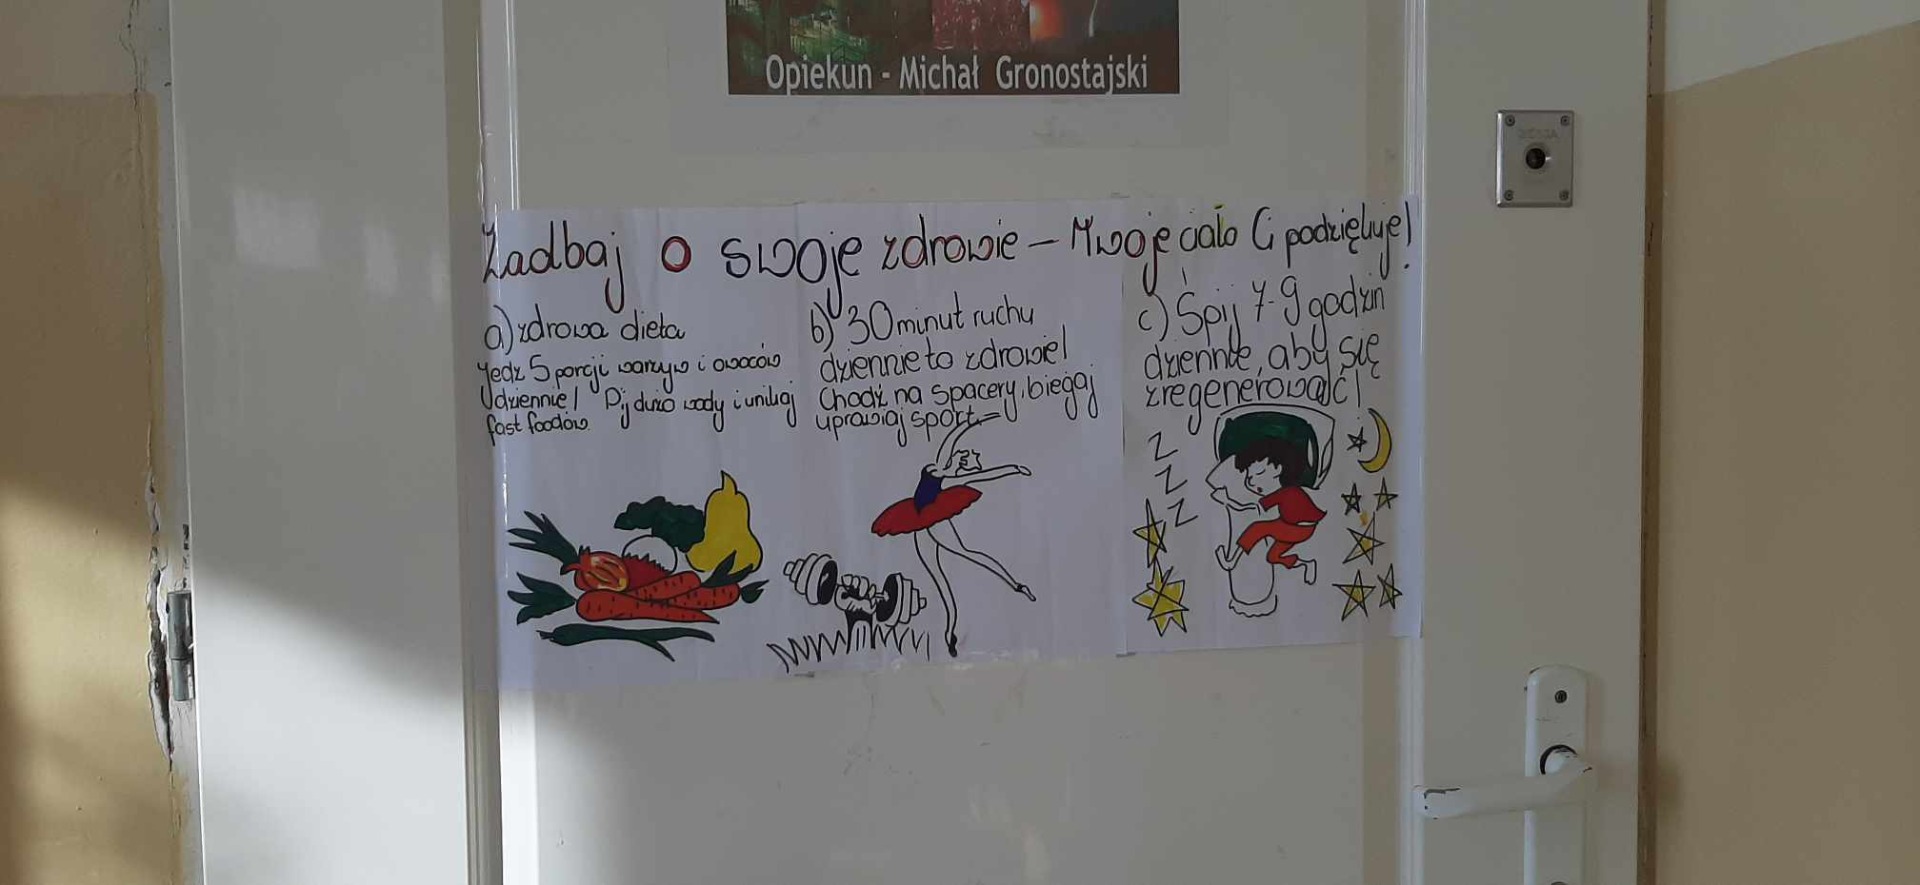 Opiekun - Michał Gronostajski
Zadbaj o swoje zdrowie – Twoje ciało Ci podziękuje!
a) zdrowa dieta
Jedz 5 porcji warzyw i owoców
dziennie! Pij dużo wody i unikaj
fast foodów
b) 30 minut ruchu
dziennie to zdrowie!
Chodź na spacery, biegaj
uprawiaj sport
c) Śpij 7-9 godzin
dziennie, aby się
zregenerować!
Z
Z
Z